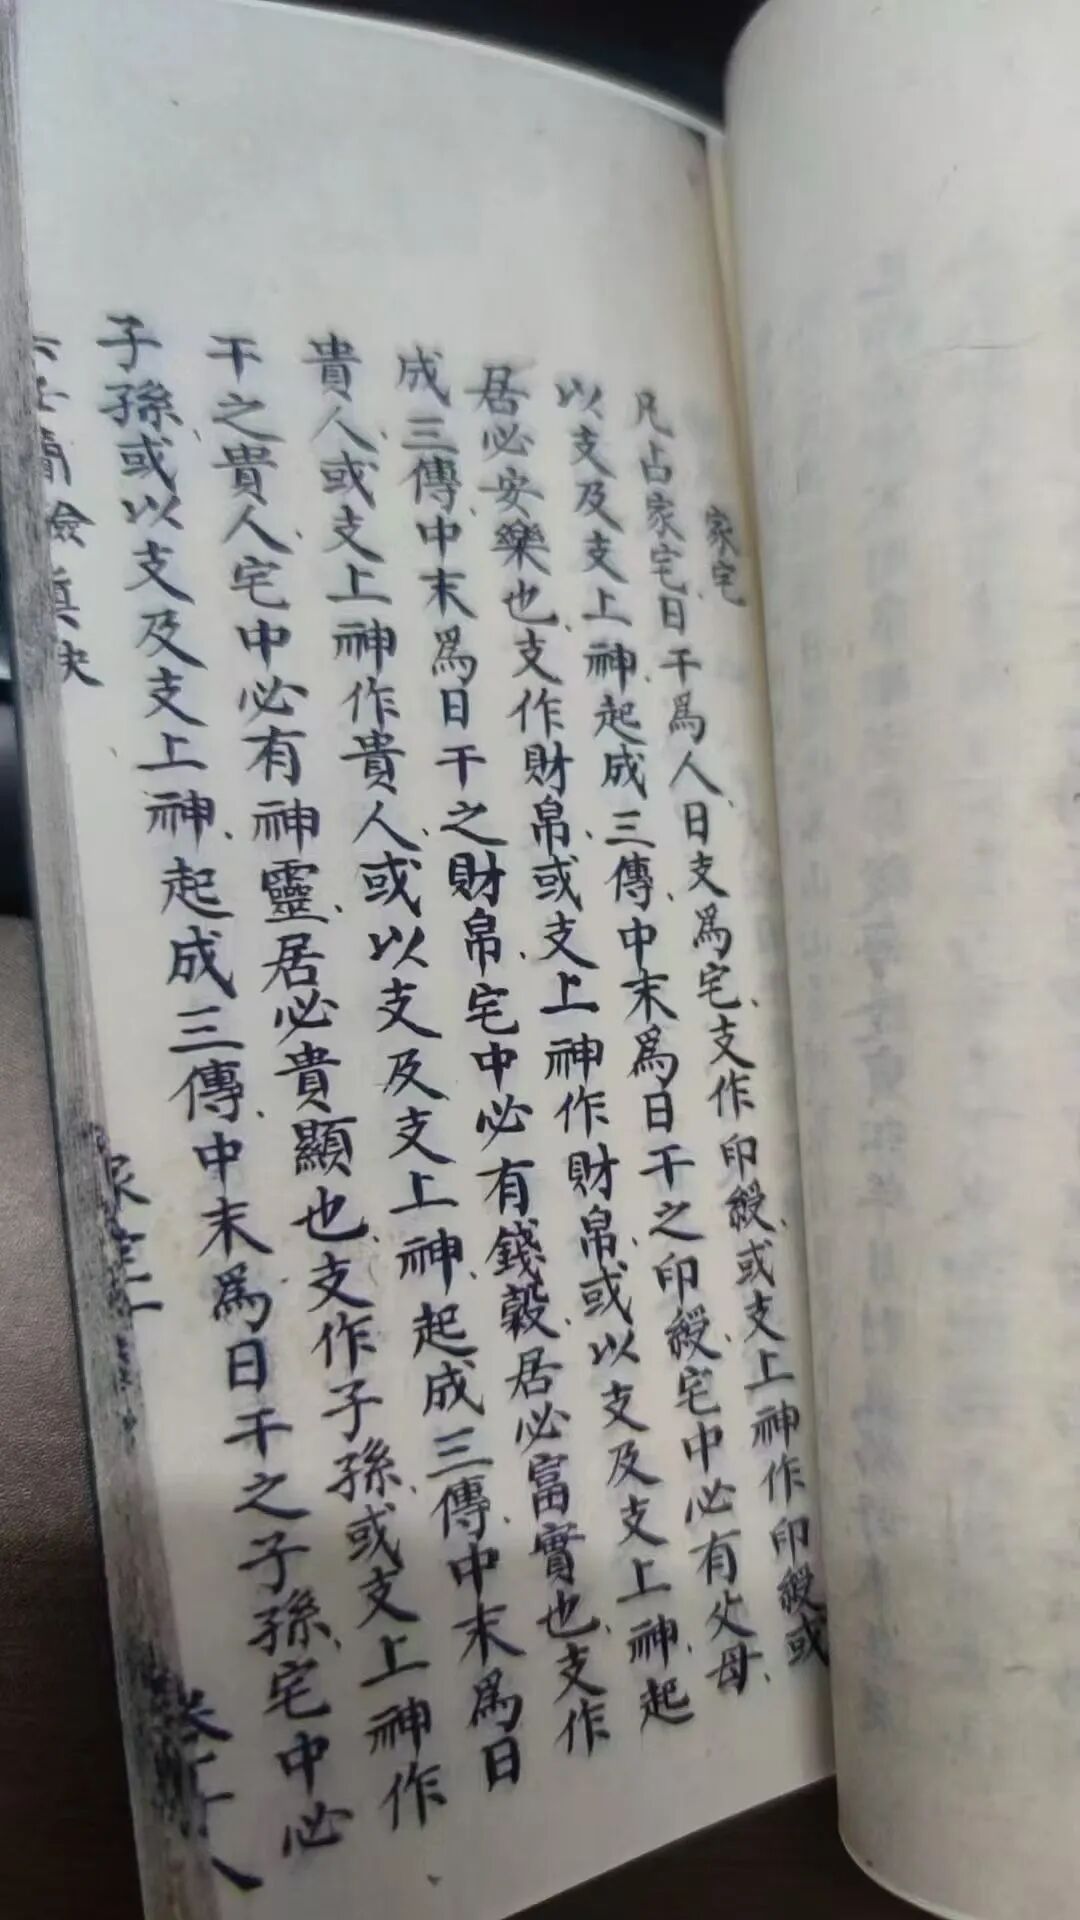 家宅
凡占家宅日干為人、日支為宅、支作印綬、或支上神作印綬或
以支及支上神、起成三傳、中末為日干之印綬、宅中必有父母、
居必安樂也、支作財帛、或支上神作財帛、或以支及支上神、起
成三傳、中末為日干之財帛、宅中必有錢穀、居必富實也、支作
貴人、或支上神作貴人、或以支及支上神、起成三傳、中末為日
干之貴人、宅中必有神靈、居必貴顯也、支作子孫、或支上神作
子孫、或以支及支上神、起成三傳、中末為日干之子孫、宅中必
六壬簡險真訣
家宅